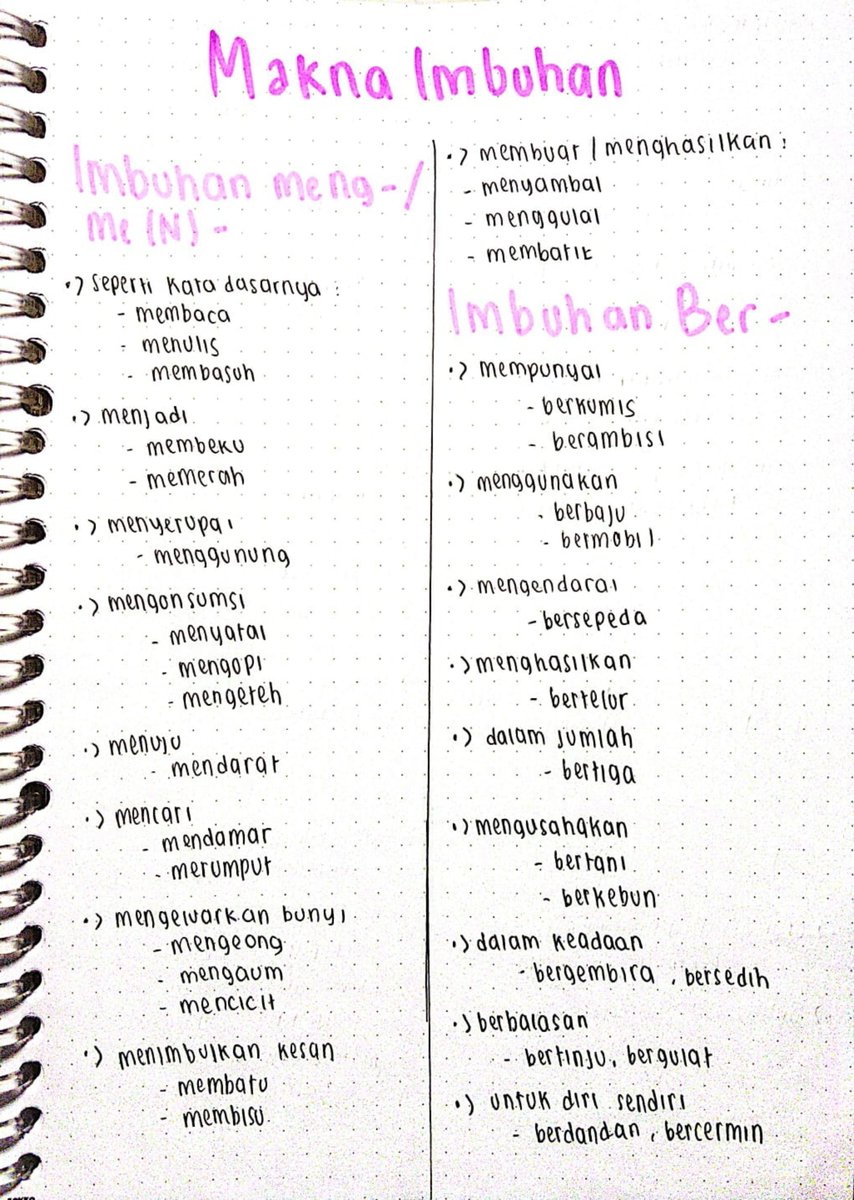 Makna Imbuhan
Imbuhan meng-/
Me(N)-
•> seperti kata dasarnya :
- membaca
- menulis
- membasuh
•> menjadi
- membeku
- memerah
•> menyerupai
- menggunung
•> mengonsumsi
- menyatai
- mengopi
- mengeteh
•> menuju
- mendarat
•> mencari
- mendamar
- merumput
•> mengeluarkan bunyi
- mengeong
- mengaum
- mencicit
•> menimbulkan kesan
- membatu
- membisu
•> membuat / menghasilkan :
- menyambal
- menggulai
- membatik
Imbuhan Ber-
•> mempunyai
- berkumis
- berambisi
•> menggunakan
- berbaju
- bermobil
•> mengendarai
- bersepeda
•> menghasilkan
- bertelur
•> dalam jumlah
- bertiga
•> mengusahakan
- bertani
- berkebun
•> dalam keadaan
- bergembira, bersedih
•> berbalasan
- bertinju, bergulat
•> untuk diri sendiri
- berdandan, bercermin